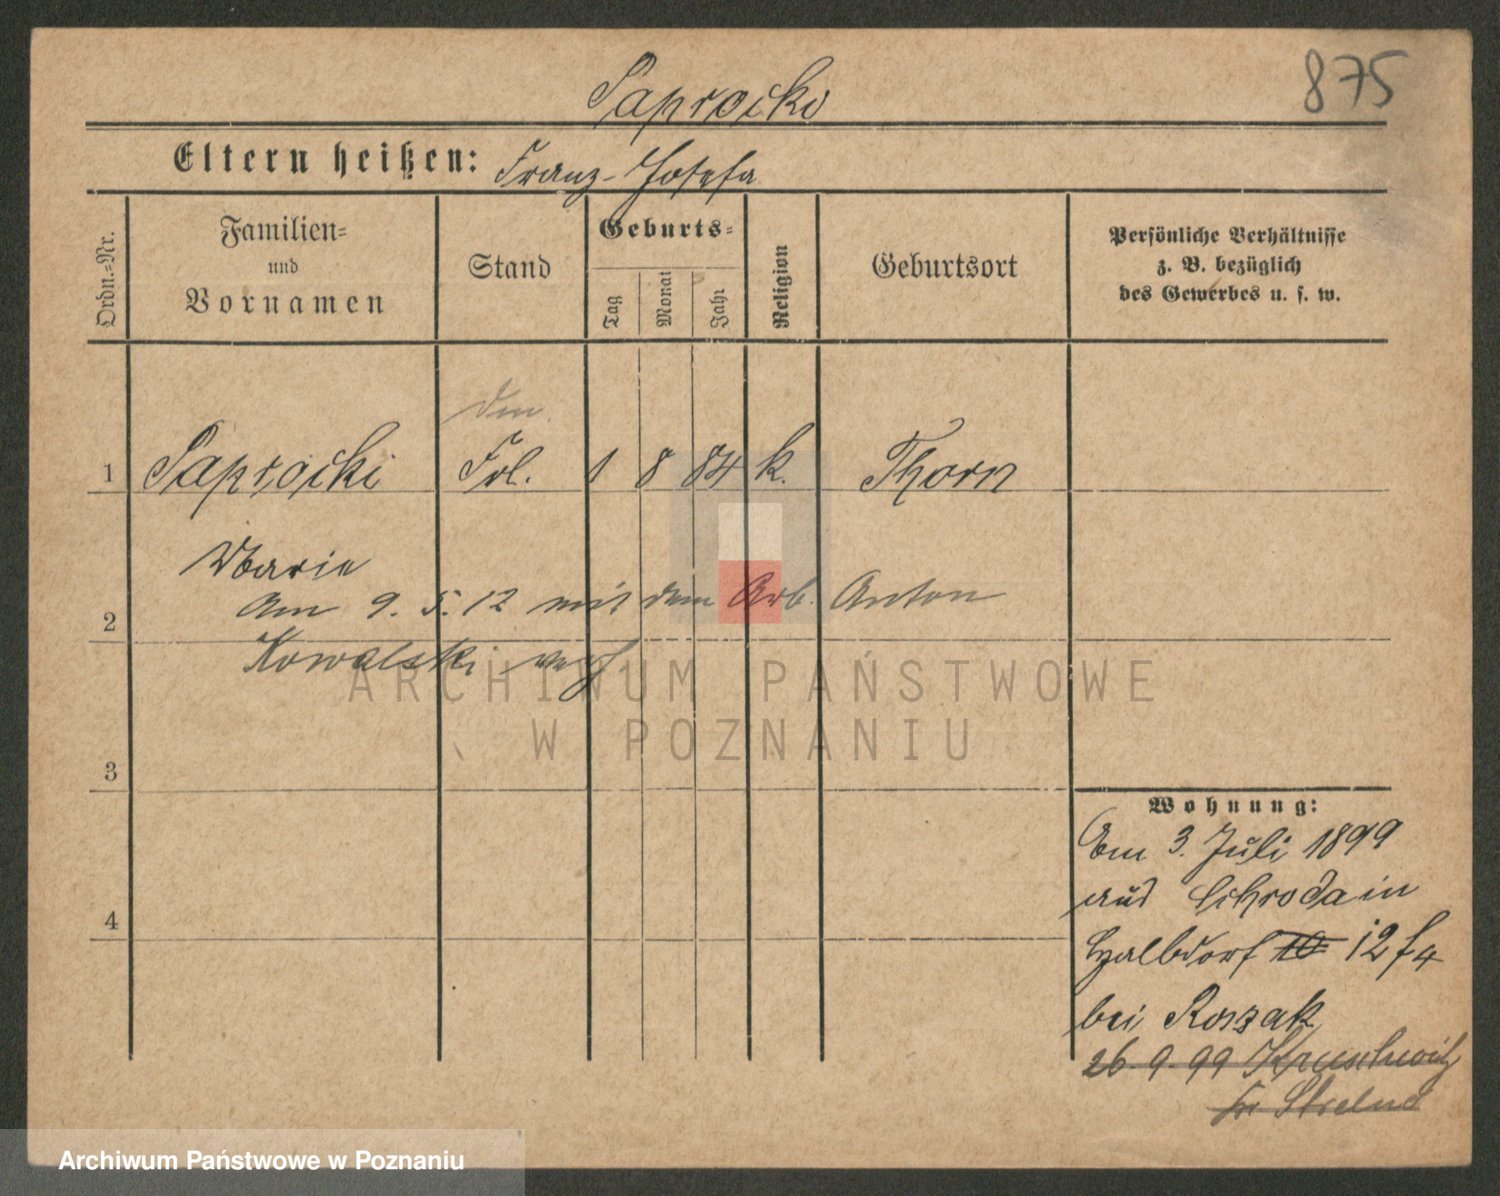 875
Saprocki
Eltern heißen: Franz - Josefa
Ordn.=Nr.
Familien=
und
Vornamen
Stand
Geburts=
Tag
Monat
Jahr
Religion
Geburtsort
Persönliche Verhältnisse
z. B. bezüglich
des Gewerbes u. s. w.
1 Saprocki Frl. 1 8 84 k. Thorn
Marie
2 Am 9. 5. 12 mit dem Arb. Anton
Kowalski verh
3
4
Wohnung:
Am 3. Juli 1899
aus Schroda in
Halbdorf 10 12 f 4
bei Roszak
26. 9. 99 Kruschwitz
Kr Strelno
ARCHIWUM PAŃSTWOWE
W POZNANIU
Archiwum Państwowe w Poznaniu